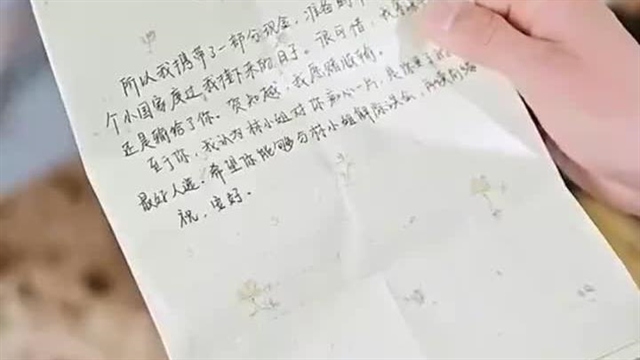 所以我携带了一部分现金,准备前
个小国家度过我往后的日子。很可惜,我
还是输给了你。贺知越,我愿赌服输。
至于你,我认为林小姐对你痴心一片,是
最好人选。希望你能够与林小姐解除误会,
祝,安好。